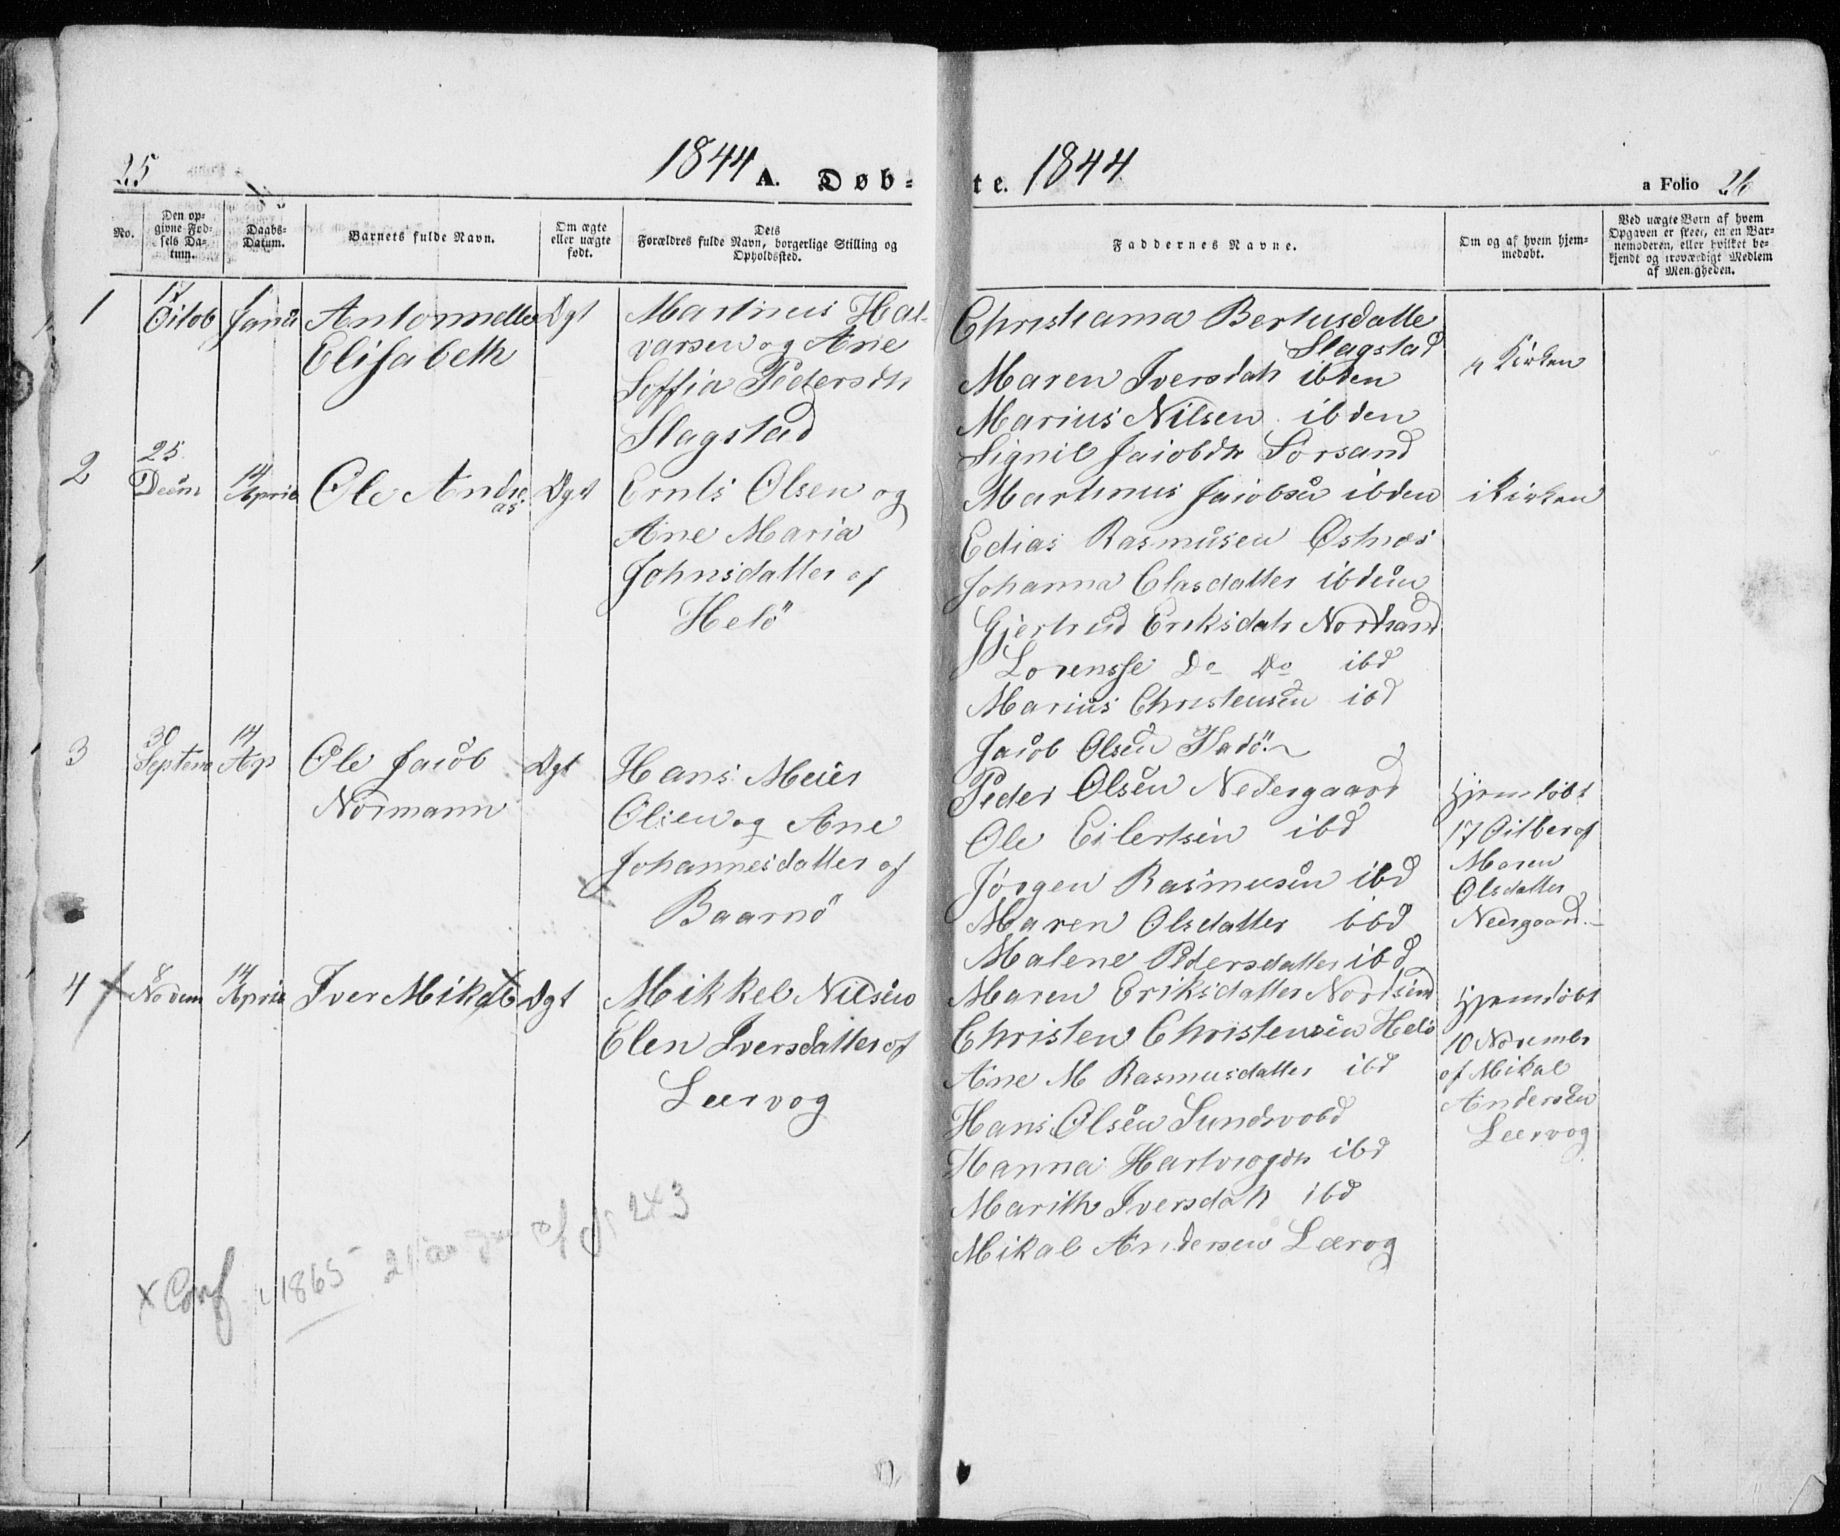 25
1844 A. Døb-
No.
Den op-
givne Fød-
sels Da-
tum.
Daabs-
Datum.
Barnets fulde Navn.
Om ægte
eller uægte
født.
Dets
Forældres fulde Navn, borgerlige Stilling og
Opholdssted.
1
17
Octob
Antonnette
Elisabeth
Ægt
Martinus Hal-
varsen og Ane
Soffia Pedersdtr
Slagstad
2
25
Decm
14
April
Ole Andre
as
Ægt
Ernts Olsen og
Ane Maria
Johnsdatter af
Helö
3
30
Septem
14
Apr
Ole Jacob
Normann
Ægt
Hans Meier
Olsen og Ane
Johannesdatter af
Baarnö
4
8
Novem
14
April
Iver Mikal
Ægt
Mikkel Nilsen
Elen Iversdatter af
Leervog
x Conf 1865
243
te. 1844
a Folio 26
Faddernes Navne.
Om og af hvem hjem-
medøbt.
Ved uægte Børn af hvem
Opgaven er skeet, en en Bar-
nemoderen, eller hvilket be-
kjendt og troværdigt Medlem
af Menigheden.
Christiana Bertusdatte
Slagstad
Maren Iversdatr ibden
Marius Nilsen ibden
Signil Jacobdtr Sorsand
i Kirken
Martinus Jacobsen ibden
Edias Rasmusen Østnes
Johanna Clasdatter ibden
Gjertrud Eriksdatr Nordsand
Lorensse Do Do ibd
Marius Christensen ibd
Jacob Olsen Hadö
i Kirken
Peder Olsen Nedergaard
Ole Eilertsen ibd
Jörgen Rasmusen ibd
Maren Olsdatter ibd
Malene Pedersdatter ibd
Hjemdöbt
17 Octber af
Maren
Olsdatter
Neergaard
Maren Eriksdatter Nordsand
Christen Christensen Helö
Ane M Rasmusdatter ibd
Hans Olsen
Hanna Hartvogdtr ibd
Marith Iversdatr ibd
Mikal Andersen Leervog
Hjemdöbt
10 Novembr
af Mikal
Andersen
Leervog